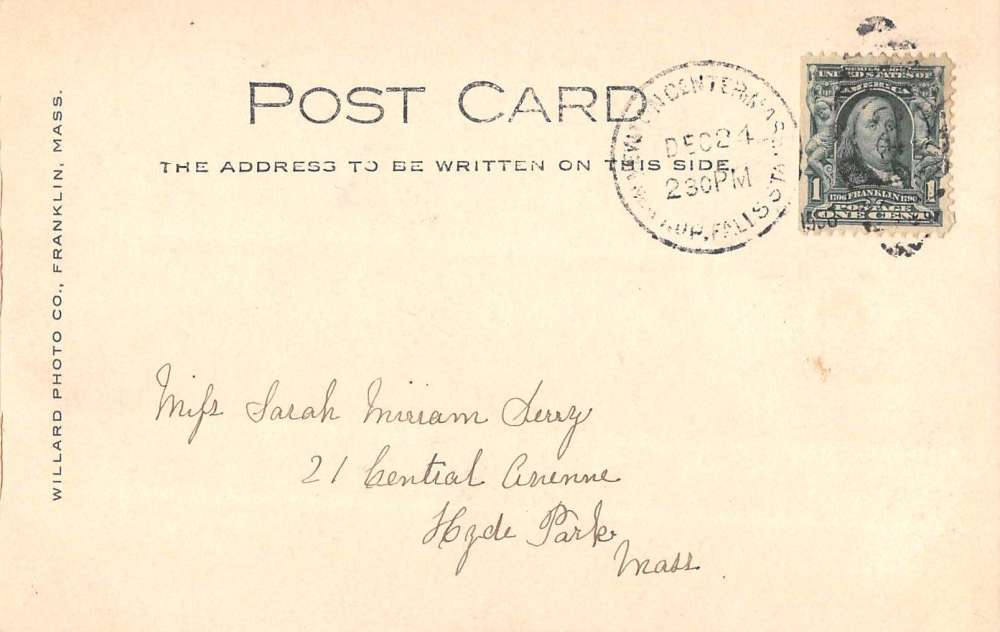 POST CARD
THE ADDRESS TO BE WRITTEN ON THIS SIDE.
WILLARD PHOTO CO., FRANKLIN, MASS.
NEWTON CENTER MASS.
DEC 24
230PM
UP. FALLS STA.
SERIES 1902
UNITED STATES OF
AMERICA
1 1
1706 FRANKLIN 1790
POSTAGE
ONE CENT
Miss Sarah Mirriam Derry
21 Central Avenue
Hyde Park
Mass